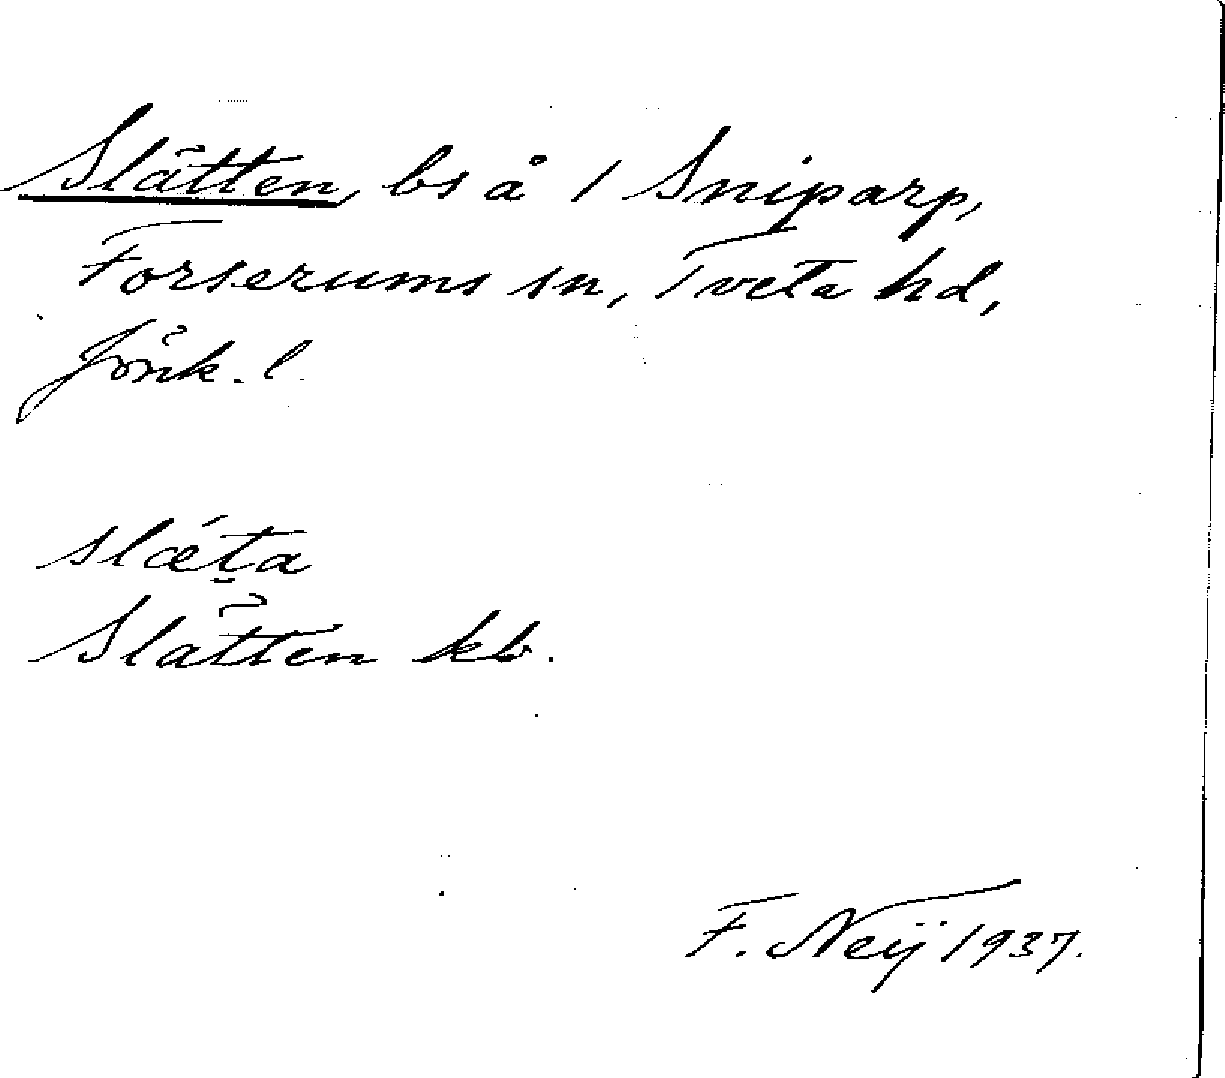 Slätten, bs å 1 Sniparp,
Forserums sn, Tveta hd,
Jönk. l.
slǽt̬a
Slätten kb.
F. Neij 1937.